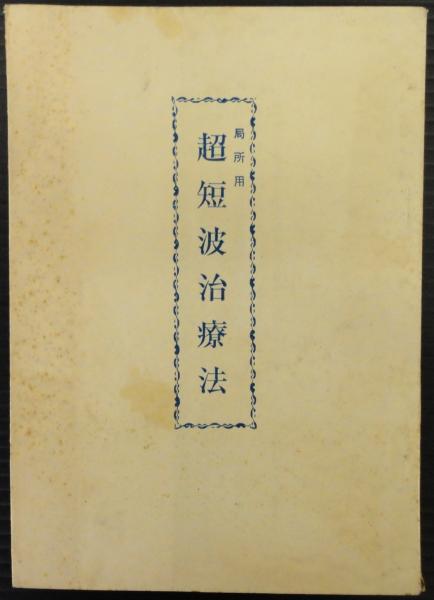 局所用
超短波治療法